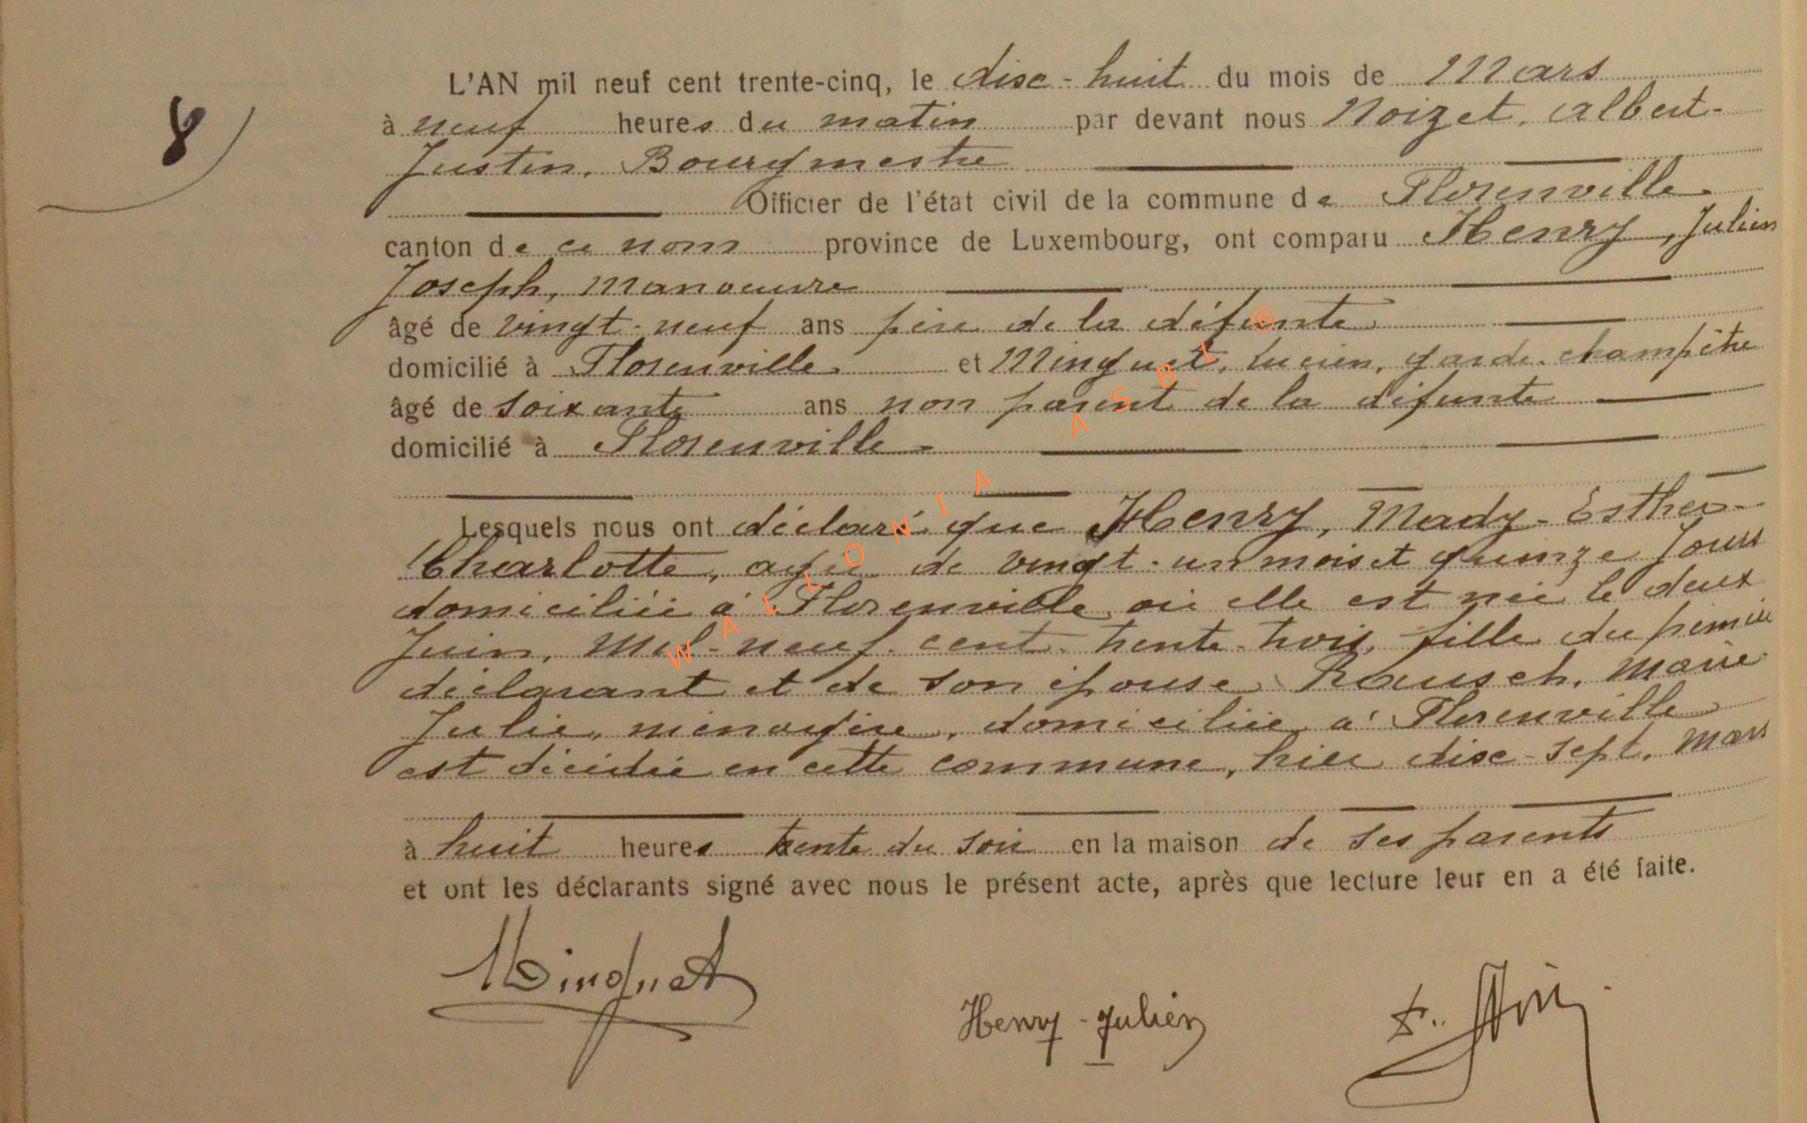 8
L'AN mil neuf cent trente-cinq, le dise-huit du mois de Mars
à neuf heures du matin par devant nous Noizet, Albert-
Justin, Bourgmestre
Officier de l'état civil de la commune de Florenville
canton de ce nom province de Luxembourg, ont comparu Henry, Julien
Joseph, manoeuvre
âgé de vingt-neuf ans père de la défunte
domicilié à Florenville et Minquet, Lucien, garde-champêtre
âgé de soixante ans non parent de la défunte
domicilié à Florenville
Lesquels nous ont déclaré que Henry, Mady-Esther-
Charlotte, agée de vingt-un mois et quinze jours
domiciliée à Florenville où elle est née le deux
Juin, Mil-neuf-cent-trente-trois, fille du premier
déclarant et de son épouse Rausch, Marie
Julie, ménagère, domiciliée à Florenville
est décédée en cette commune, hier dise-sept, Mars
à huit heures trente du soir en la maison de ses parents
et ont les déclarants signé avec nous le présent acte, après que lecture leur en a été faite.
Minquet Henry-Julien
WALLONIA ASBL ®